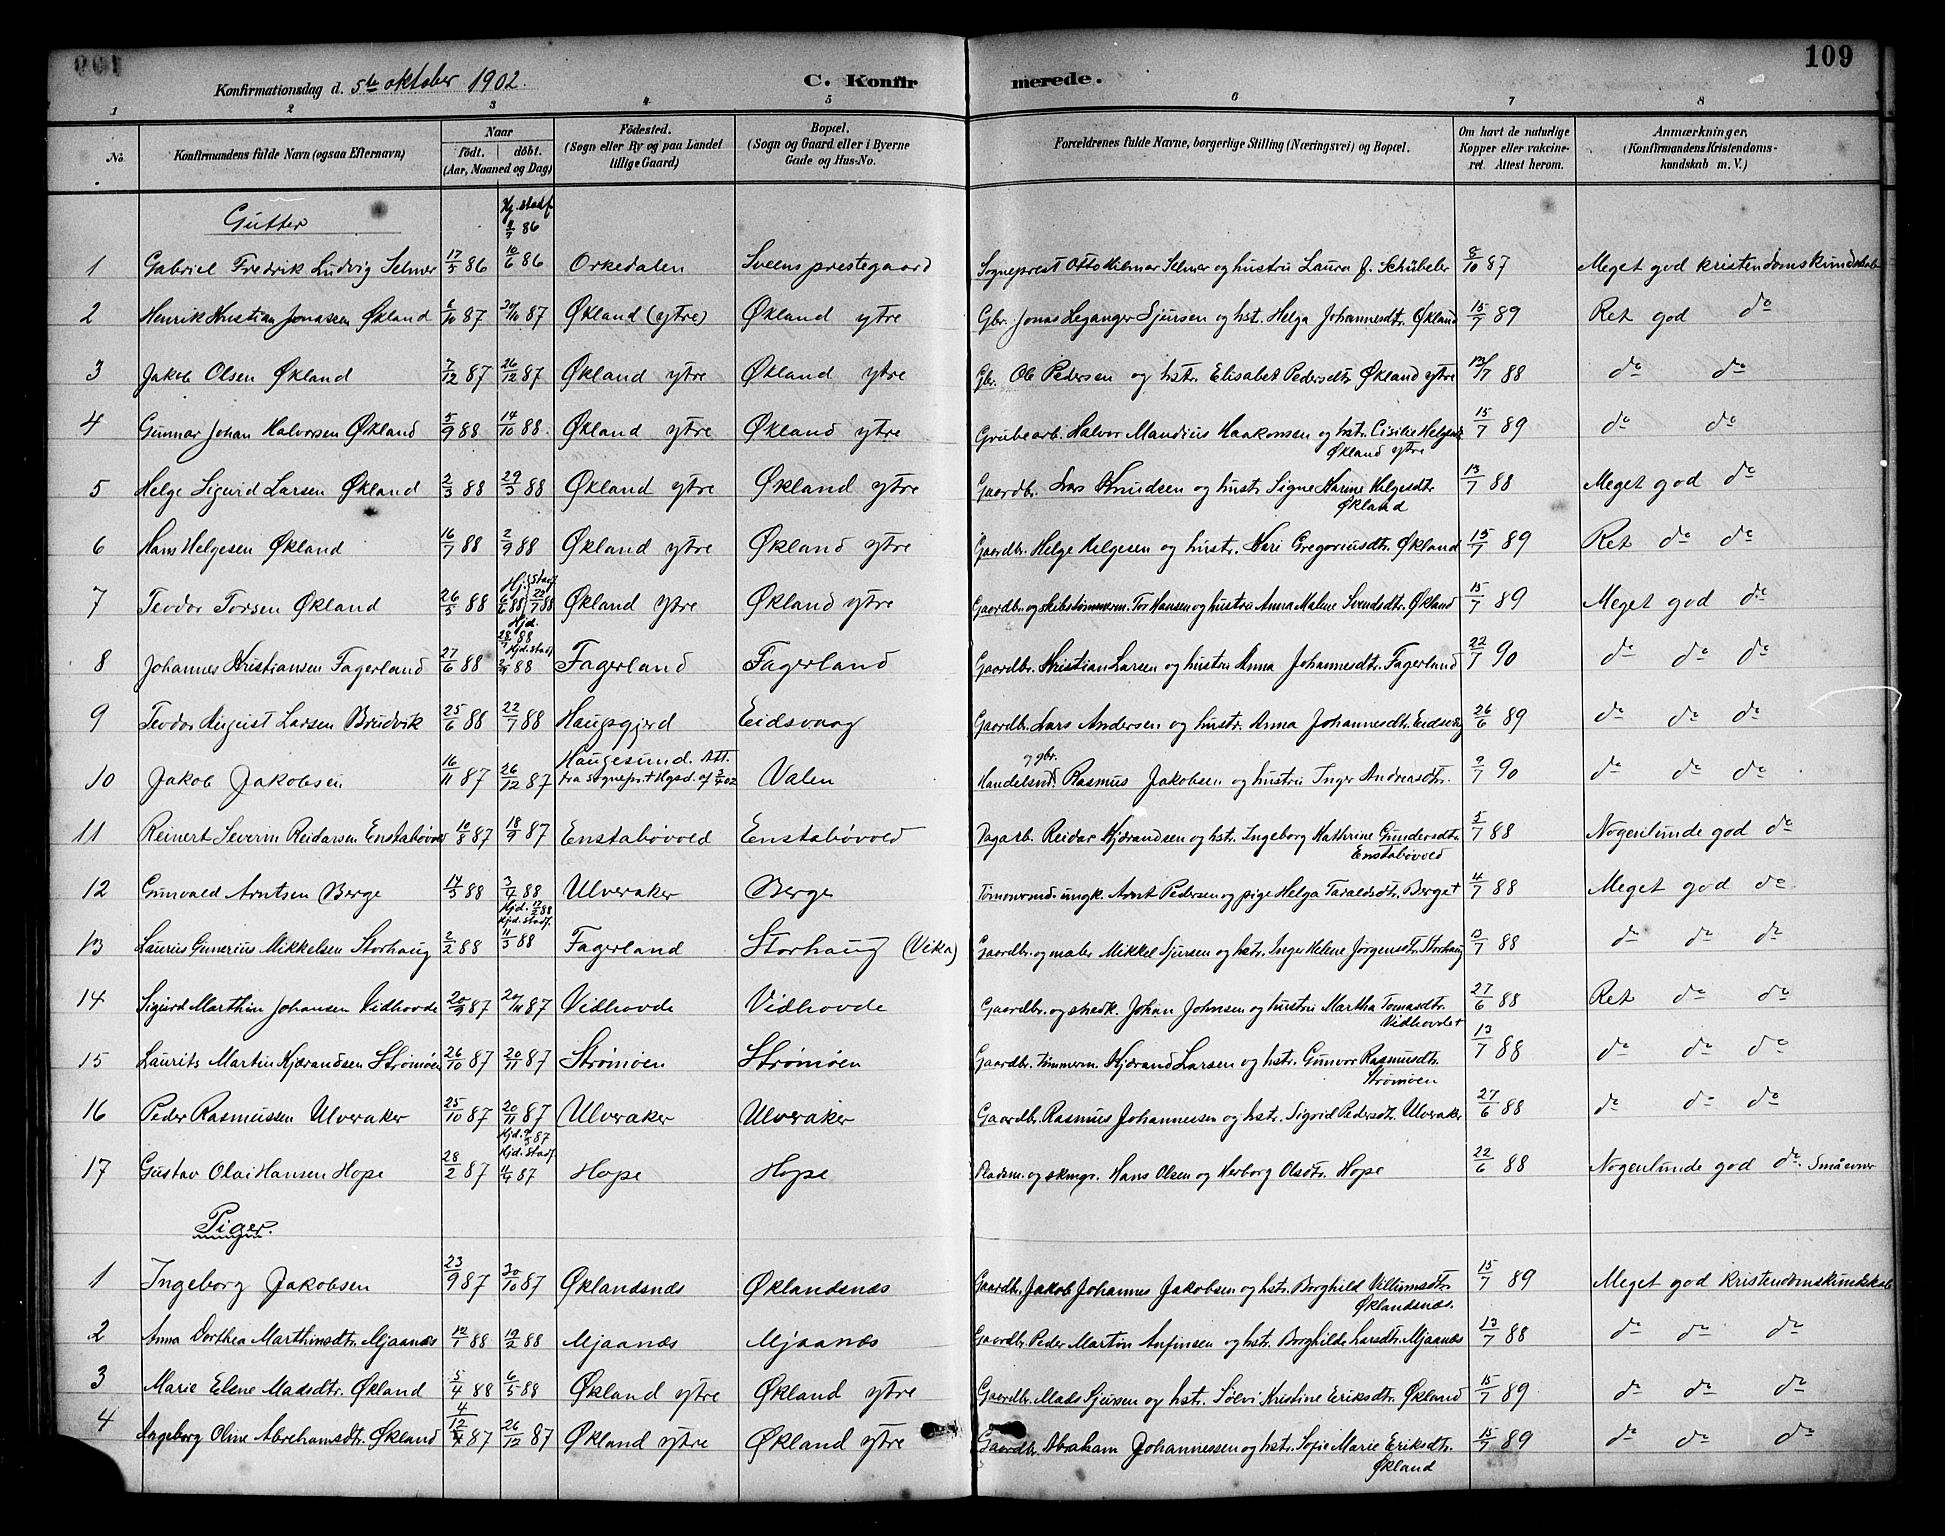 109
Konfirmationsdag d. 5te oktober 1902.
C. Konfirmerede.
1 2 3 4 5 6 7 8
No. Konfirmandens fulde Navn (ogsaa Efternavn) Naar födt. döbt. (Aar, Maaned og Dag) Födested. (Sogn eller By og paa Landet tillige Gaard) Bopæl. (Sogn og Gaard eller i Byerne Gade og Hus-No. Forældrenes fulde Navne, borgerlige Stilling (Næringsvei) og Bopæl. Om havt de naturlige Kopper eller vakcineret. Attest herom. Anmærkninger. (Konfirmandens Kristendomskundskab m. V.)
Gutter
1 Gabriel Fredrik Ludvig Selmer 17/5 86 Hj. stadf. 10/6 86 Orkedalen Sveens prestegaard Sogneprest Otto Hilmar Selmer og hustru Laura J. Schübeler 8/10 87 Meget god kristendomskundskab
2 Henrik Kristian Jonassen Økland 6/10 87 30/10 87 Økland (ytre) Økland ytre Gbr. Jonas Leganger Sjursen og hst. Helga Johannesdtr. Økland 15/7 89 Ret god do
3 Jakob Olsen Økland 7/12 87 26/12 87 Økland ytre Økland ytre Gbr. Ole Pedersen og hstr. Elisabet Pedersdtr Økland ytre 13/7 88 do do
4 Gunnar Johan Halvorsen Økland 5/9 88 14/10 88. Økland ytre Økland ytre Grubearb. Halvor Mandius Haakonsen og hstr. Cisilie Helgesdtr Økland ytre 15/7 89 do do
5 Helge Sigvid Larsen Økland 2/3 88 29/3 88 Økland ytre Økland ytre Gaardbr. Lars Knudsen og hustr. Signe Karine Helgesdtr Økland 13/7 88 Meget god do
6 Hans Helgesen Økland 16/7 88 2/9 88 Økland ytre Økland ytre Gaardbr. Helge Helgesen og hustr. Kari Gregoriusdtr. Økland 15/7 89 Ret do do
7 Teodor Torsen Økland 26/5 88 Hj. 6/6 88 stadf. 22/7 88 Økland ytre Økland ytre Gaardbr. og skibstømmerm. Tor Hansen og hustru Anna Malene Svendsdtr. Økland 15/7 89 Meget god do
8 Johannes Kristiansen Fagerland 27/6 88 Hjd. 28/ 88 Hjd. stadf. 88 Fagerland Fagerland Gaardbr. Kristian Larsen og hustru Anna Johannesdtr. Fagerland 22/7 90 do do do
9 Teodor August Larsen Brudvik 25/6 88 22/7 88 Haugsgjerd Eidsvaag Gaardbr. Lars Andersen og hustr. Anna Johannesdtr. Eidsvaag 26/6 89 do do do
10 Jakob Jakobsen 16/11 87 26/12 87 Haugesund. Att. fra sognepr. t Hgsd. af 3/7 02 Valen Handelsmd. og gbr. Rasmus Jakobsen og hustru Inger Andreasdtr. 9/7 90 do do do
11 Reinert Severin Reidarsen Enstabøvold 10/8 87 18/9 87 Enstabøvold Enstabøvold Dagarb. Reidar Kjærandsen og hst. Ingeborg Kathrine Gundersdtr. Enstabøvold 5/7 88 Nogenlunde god do
12 Gunvald Arntsen Berge 14/3 88 3/4 88 Ulveraker Berge Tømmermd. ungk. Arnt Pedersen og pige Helga Taraldsdtr. Berget 4/7 88 Meget god do
13 Laurits Gunerius Mikkelsen Storhaug 2/2 88 Hjd. 17/2 88 Hjd. stadf. 11/3 88 Fagerland Storhaug (Vika) Gaardbr. og maler Mikkel Sjursen og hstr. Inger Helene Jørgensdtr. Storhaug 13/7 88 do do do
14 Sigurd Marthin Johansen Vidhovde 20/9 87 20/11 87 Vidhovde Vidhovde Gaardbr. og snedk. Johan Johnsen og hustru Martha Tomasdtr. Vidhovdet 27/6 88 Ret do do
15 Laurits Martin Kjærandsen Strømøen 26/10 87 20/11 87 Strømøen Strømøen Gaardbr. tømmerm. Kjærand Larsen og hst. Gunvor Rasmusdtr. Strømøen 13/7 88 do do do
16 Peder Rasmussen Ulveraker 25/10 87 20/11 87 Ulveraker Ulveraker Gaardbr. Rasmus Johannessen og hst. Sigrid Pedersdtr. Ulveraker 27/6 88 do do do
17 Gustav Olai Hansen Hope 28/2 87 Hjd. 87 Hjd. stadf. 11/4 87 Hope Hope Pladsm. og skmgr. Hans Olsen og Herborg Olsdtr. Hope 22/6 88 Nogenlunde god do. Små evner
Piger.
1 Ingeborg Jakobsen 23/9 87 30/10 87 Øklandsnæs Øklandsnæs Gaardbr. Jakob Johannes Jakobsen og hst. Borghild Villumsdtr. Øklandsnæs. 15/7 89 Meget god kristendomskundskab
2 Anna Dorthea Marthinsdtr. Mjaanæs 12/1 88 19/2 88 Mjaanæs Mjaanæs Gaardbr. Peder Martin Anfinsen og hst. Borghilde Larsdtr. Mjaanæs 13/7 88 do do do
3 Marie Elene Madsdtr. Økland 5/4 88 6/5 88 Økland ytre Økland ytre Gaardbr. Mads Sjursen og hst. Sølvi Kristine Eriksdtr. Økland 15/7 89 do do do
4 Ingeborg Oline Abrahamsdtr. Økland 4/12 87 26/12 87 Økland ytre Økland ytre Gaardbr. Abraham Johannessen og hst. Sofie Marie Eriksdtr. Økland 15/7 89 do do do